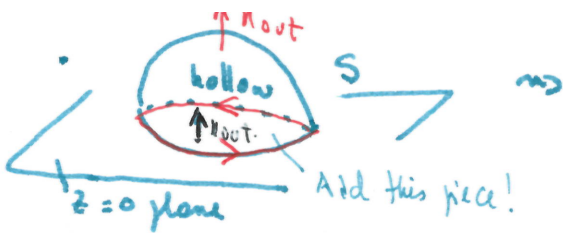 nout
hollow
S
nout.
Add this piece!
z=0 plane